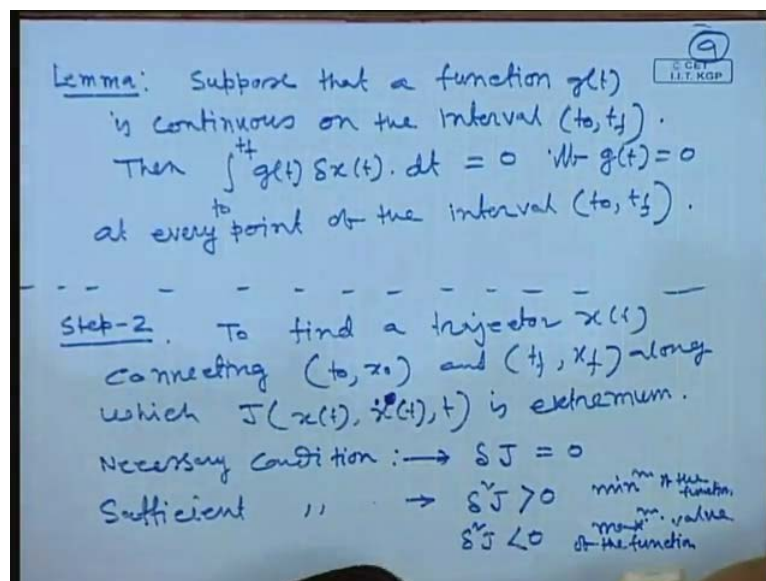 9
C CET
I.I.T. KGP
Lemma: Suppose that a function g(t)
is continuous on the interval (t0, tf).
Then ∫_{t0}^{tf} g(t) δx(t). dt = 0 g(t) = 0
at every point of the interval (t0, tf).
Step-2. To find a trajector x(t)
connecting (t0, x0) and (tf, xf) along
which J(x(t), ẋ(t), t) is extremum.
Necessary condition: → δJ = 0
Sufficient ,, → δ²J > 0 min^m of the function.
δ²J < 0 max^m. value of the function